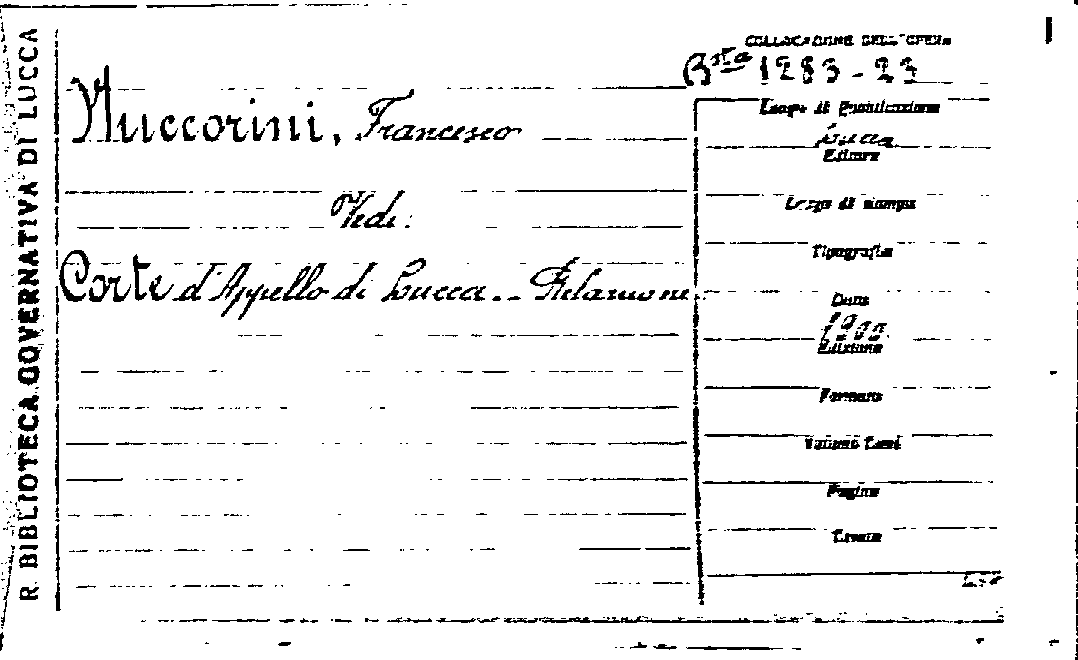 R. BIBLIOTECA GOVERNATIVA DI LUCCA
COLLOCAZIONE DELL'OPERA
Bsta 1283-23
Nuccorini, Francesco
Vedi:
Corte d'Appello di Lucca. - Relazione.
Luogo di Pubblicazione
Lucca
Editore
Luogo di stampa
Tipografia
Data
1900.
Edizione
Formato
Volumi
Pagine